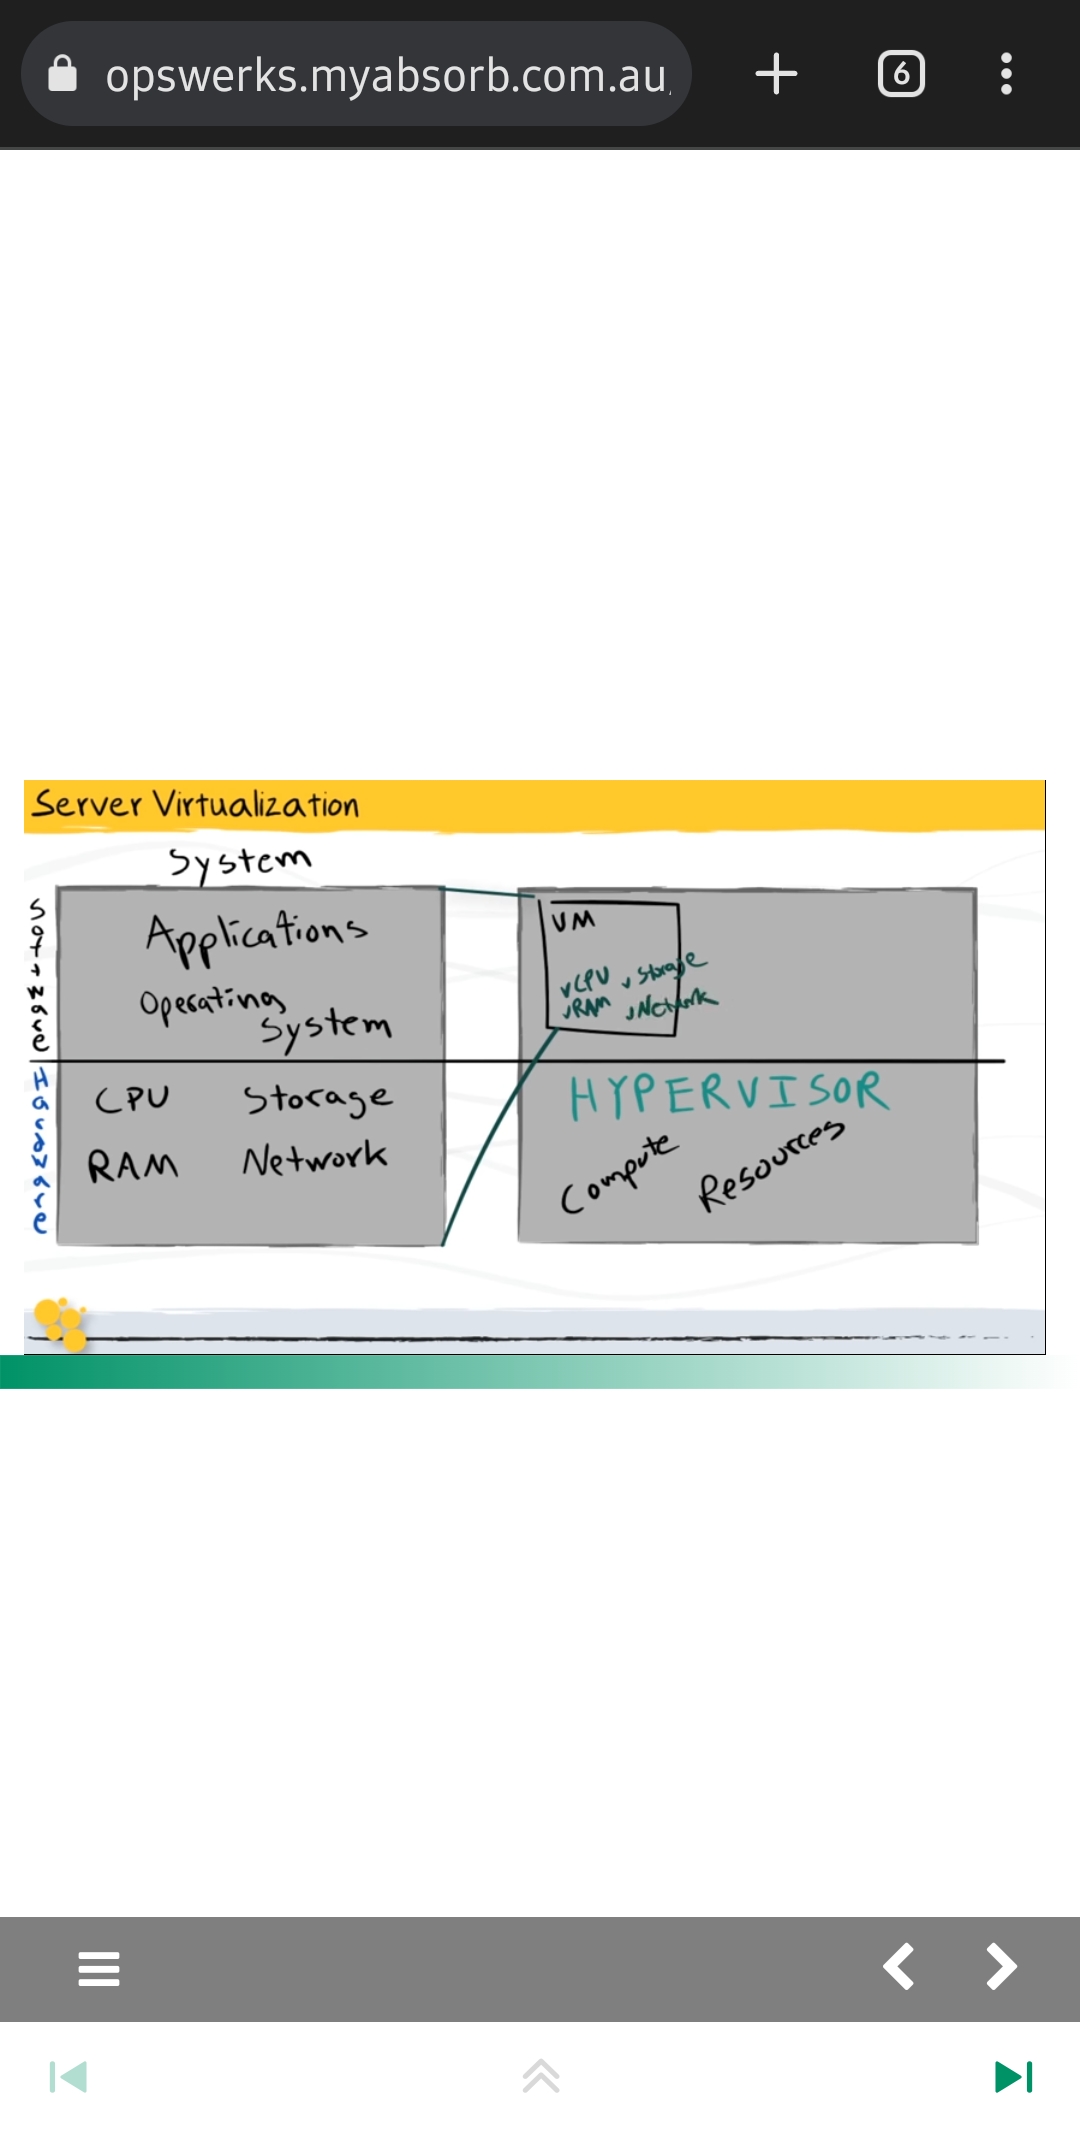 opswerks.myabsorb.com.au
6
Server Virtualization
System
Software
Applications
Operating
System
Hardware
CPU Storage
RAM Network
VM
vCPU vStorage
vRAM vNetwork
HYPERVISOR
Compute Resources